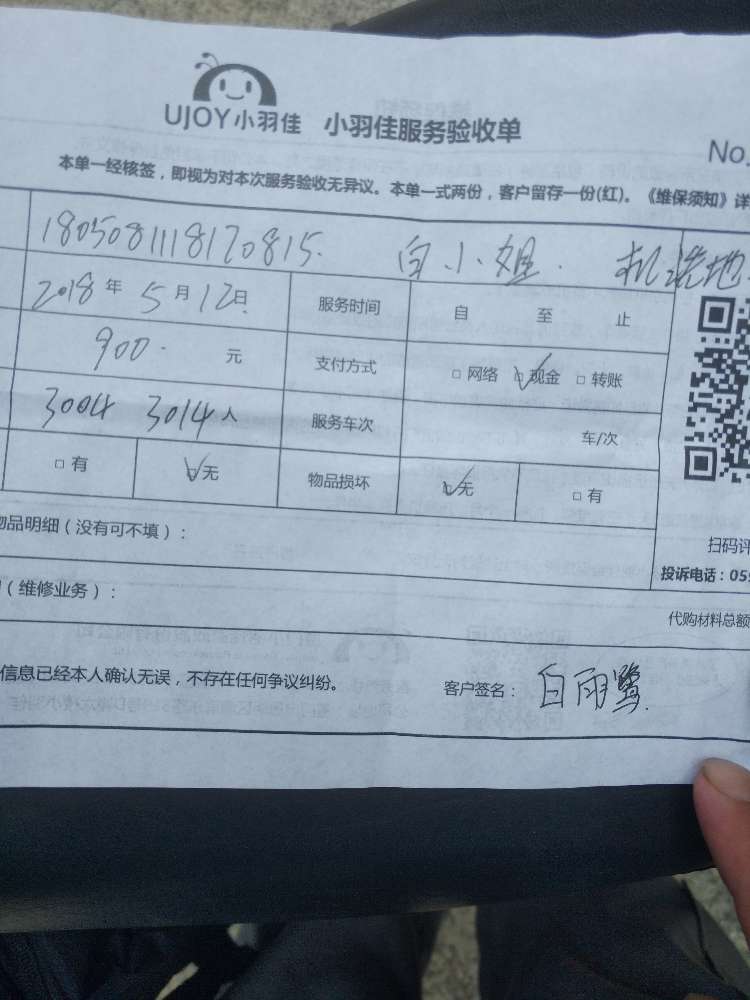 UJOY小羽佳 小羽佳服务验收单
No.
本单一经核签，即视为对本次服务验收无异议。本单一式两份，客户留存一份(红)。《维保须知》详
1805081118170815. 白小姐. 机洗地
2018年5月12日 服务时间 自 至 止
900. 元 支付方式 □ 网络 ☑ 现金 □ 转账
3004 3014人 服务车次 车/次
□ 有 ☑ 无 物品损坏 ☑ 无 □ 有
物品明细（没有可不填）：
扫码评
投诉电话：059
（维修业务）：
代购材料总额
信息已经本人确认无误，不存在任何争议纠纷。 客户签名：白雨鹭.